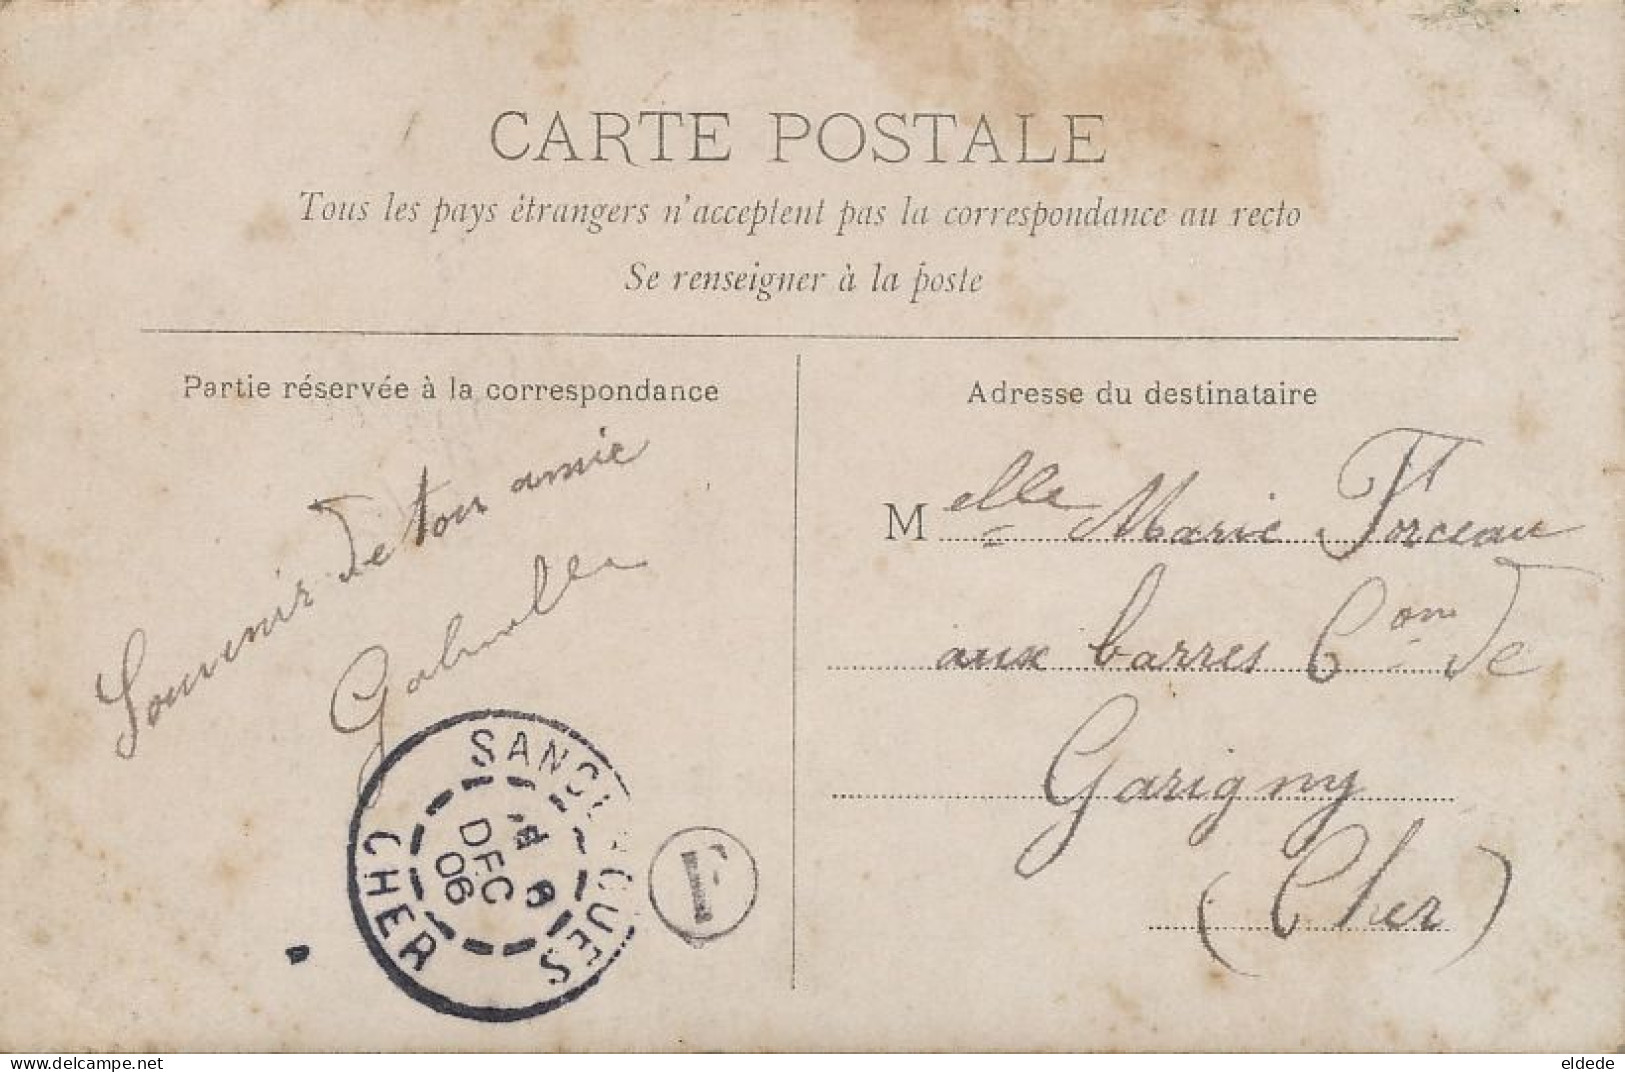 CARTE POSTALE
Tous les pays étrangers n'acceptent pas la correspondance au recto
Se renseigner à la poste
Partie réservée à la correspondance
Souvenir de ton amie
Gabrielle
Adresse du destinataire
Melle Marie Forceau
aux barres Com de
Garigny
(Cher)
CHER
DEC
06
delcampe.net
eldede